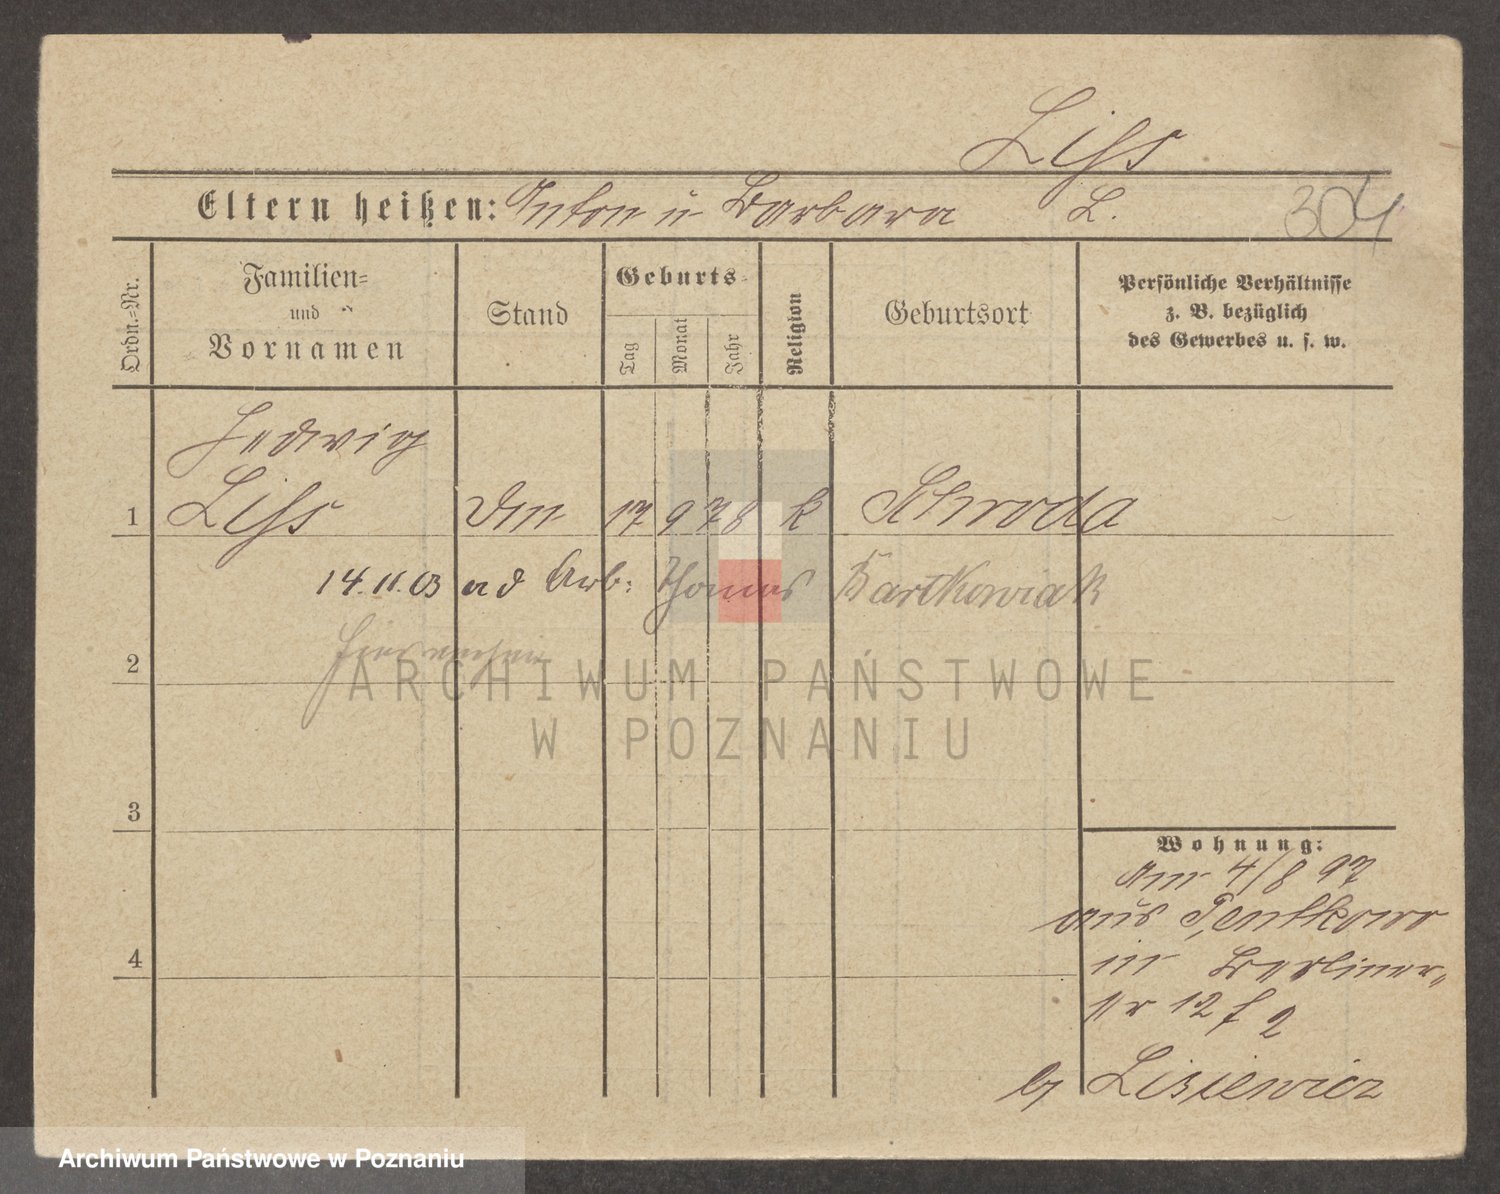 Liss
Eltern heißen: Anton u Barbara L. 304
Ordn.-Nr.
Familien-
und
Vornamen
Stand
Geburts-
Tag
Monat
Jahr
Religion
Geburtsort
Persönliche Verhältnisse
z. B. bezüglich
des Gewerbes u. s. w.
Hedwig
1 Liss 17 9 78 k Schroda
14.11.03 ad Arb: Thomas Bartkowiak
2
ARCHIWUM PAŃSTWOWE
W POZNANIU
3
Wohnung:
am 4/8 97
aus Pentkowo
in Berliner-
str 12 f 2
4
b/ Lisiewicz
Archiwum Państwowe w Poznaniu